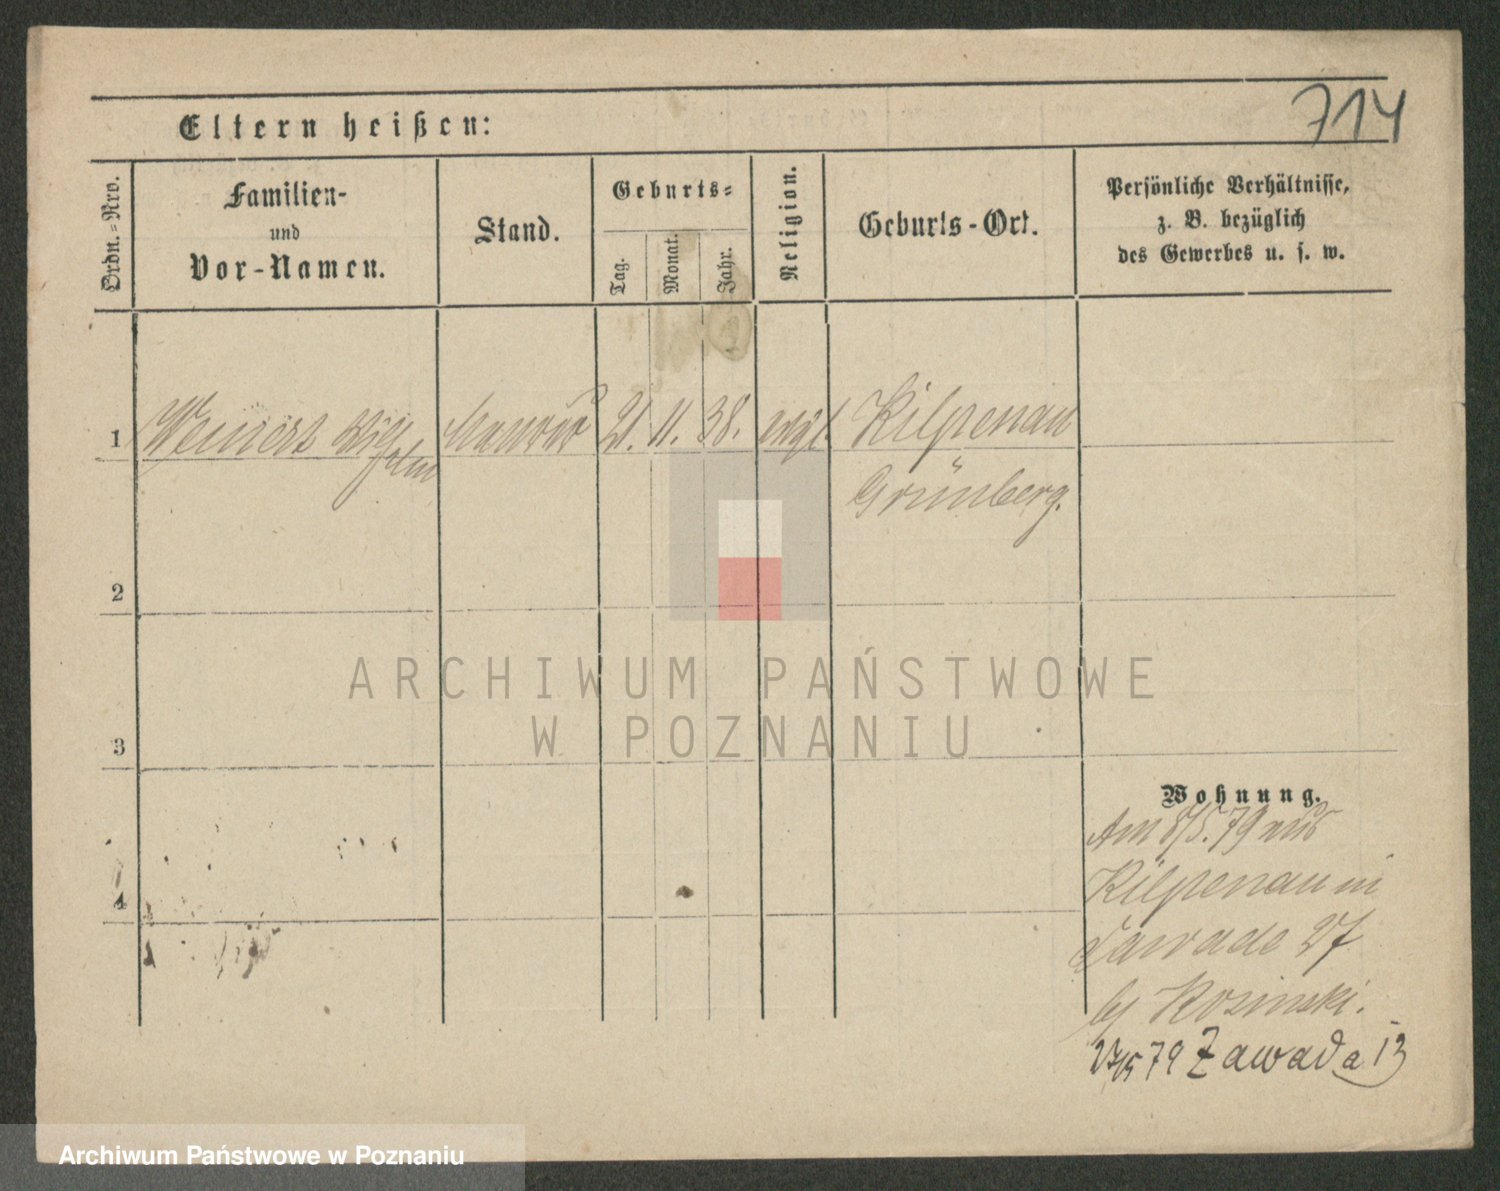 714
Eltern heißen:
Ordn.=Nro.
Familien-
und
Vor-Namen.
Stand.
Geburts=
Tag.
Monat.
Jahr.
Religion.
Geburts-Ort.
Persönliche Verhältnisse,
z. B. bezüglich
des Gewerbes u. s. w.
1
Weinert Wilhelm
Maurer
21.
11.
38.
evgl.
Kilpenau
Grünberg.
2
3
4
Wohnung.
Am 8/5.79 aus
Kilpenau in
Zawade 27
bj Rosinski.
79 Zawada 13
ARCHIWUM PAŃSTWOWE
W POZNANIU
Archiwum Państwowe w Poznaniu